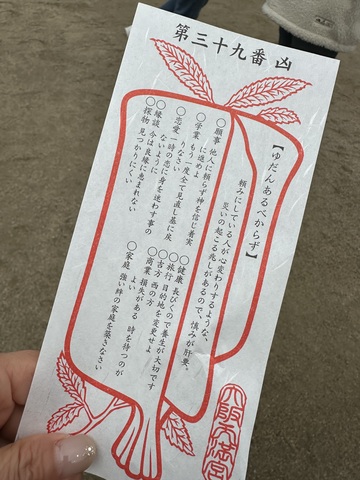 第三十九番 凶
【ゆだんあるべからず】
頼みにしている人が心変わりするような、
災いの起こる兆しがあるので、慎みが肝要。
○願事 他人に頼らず神を信じ着実
に進めよ
○学業 もう一度全て見直し基に戻
りなさい
○恋愛 一時の恋に身を迷わす事の
ないように
○縁談 今は良縁に恵まれない
○探物 見つかりにくい
○健康 長びくので養生が大切です
○旅行 目的地を変更せよ
○吉方 西の方
○商業 損失がある 時を待つのが
よい
○家庭 強い絆の家庭を築きなさい
天満宮